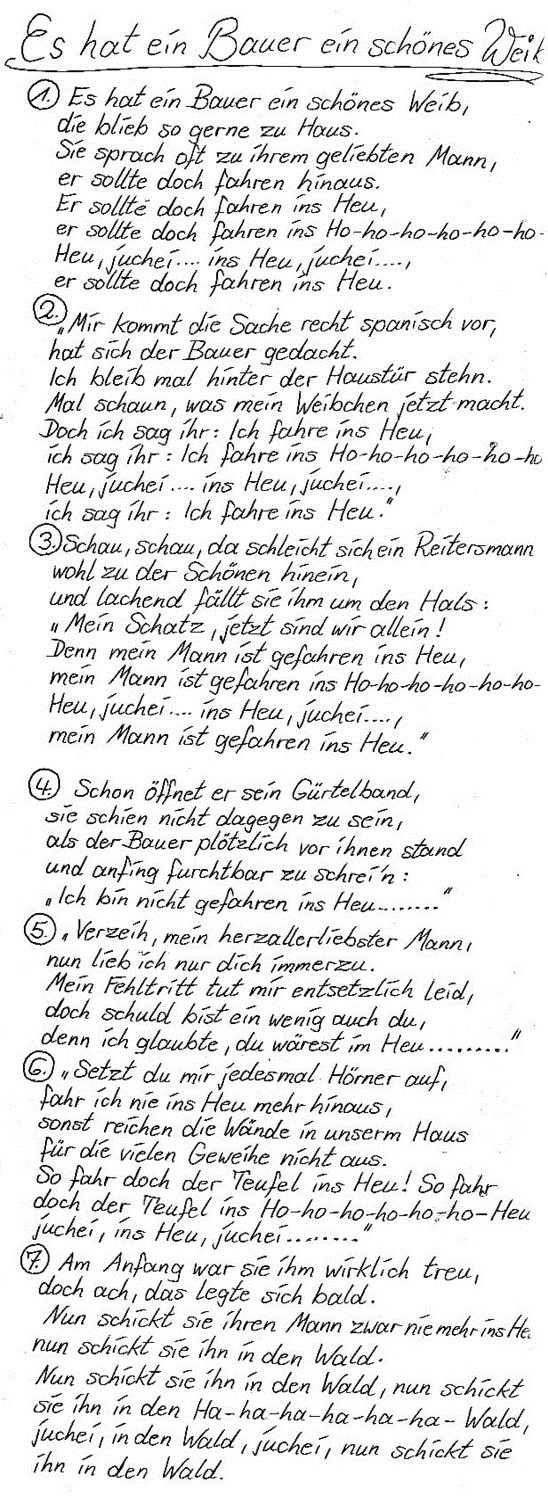 Es hat ein Bauer ein schönes Weib
1. Es hat ein Bauer ein schönes Weib,
die blieb so gerne zu Haus.
Sie sprach oft zu ihrem geliebten Mann,
er sollte doch fahren hinaus.
Er sollte doch fahren ins Heu,
er sollte doch fahren ins Ho-ho-ho-ho-ho-ho-
Heu, juchei.... ins Heu, juchei....,
er sollte doch fahren ins Heu.
2. „Mir kommt die Sache recht spanisch vor,
hat sich der Bauer gedacht.
Ich bleib mal hinter der Haustür stehn.
Mal schaun, was mein Weibchen jetzt macht.
Doch ich sag ihr: Ich fahre ins Heu,
ich sag ihr: Ich fahre ins Ho-ho-ho-ho-ho-ho
Heu, juchei.... ins Heu, juchei....,
ich sag ihr: Ich fahre ins Heu."
3. Schau, schau, da schleicht sich ein Reitersmann
wohl zu der Schönen hinein,
und lachend fällt sie ihm um den Hals:
„Mein Schatz, jetzt sind wir allein!
Denn mein Mann ist gefahren ins Heu,
mein Mann ist gefahren ins Ho-ho-ho-ho-ho-ho-
Heu, juchei.... ins Heu, juchei....,
mein Mann ist gefahren ins Heu."
4. Schon öffnet er sein Gürtelband,
sie schien nicht dagegen zu sein,
als der Bauer plötzlich vor ihnen stand
und anfing furchtbar zu schrei'n:
„Ich bin nicht gefahren ins Heu........"
5. „Verzeih, mein herzallerliebster Mann,
nun lieb ich nur dich immerzu.
Mein Fehltritt tut mir entsetzlich leid,
doch schuld bist ein wenig auch du,
denn ich glaubte, du wärest im Heu.........."
6. „Setzt du mir jedesmal Hörner auf,
fahr ich nie ins Heu mehr hinaus,
sonst reichen die Wände in unserm Haus
für die vielen Geweihe nicht aus.
So fahr doch der Teufel ins Heu! So fahr
doch der Teufel ins Ho-ho-ho-ho-ho-ho-Heu
juchei, ins Heu, juchei........"
7. Am Anfang war sie ihm wirklich treu,
doch ach, das legte sich bald.
Nun schickt sie ihren Mann zwar nie mehr ins He
nun schickt sie ihn in den Wald.
Nun schickt sie ihn in den Wald, nun schickt
sie ihn in den Ha-ha-ha-ha-ha-ha-Wald,
juchei, in den Wald, juchei, nun schickt sie
ihn in den Wald.